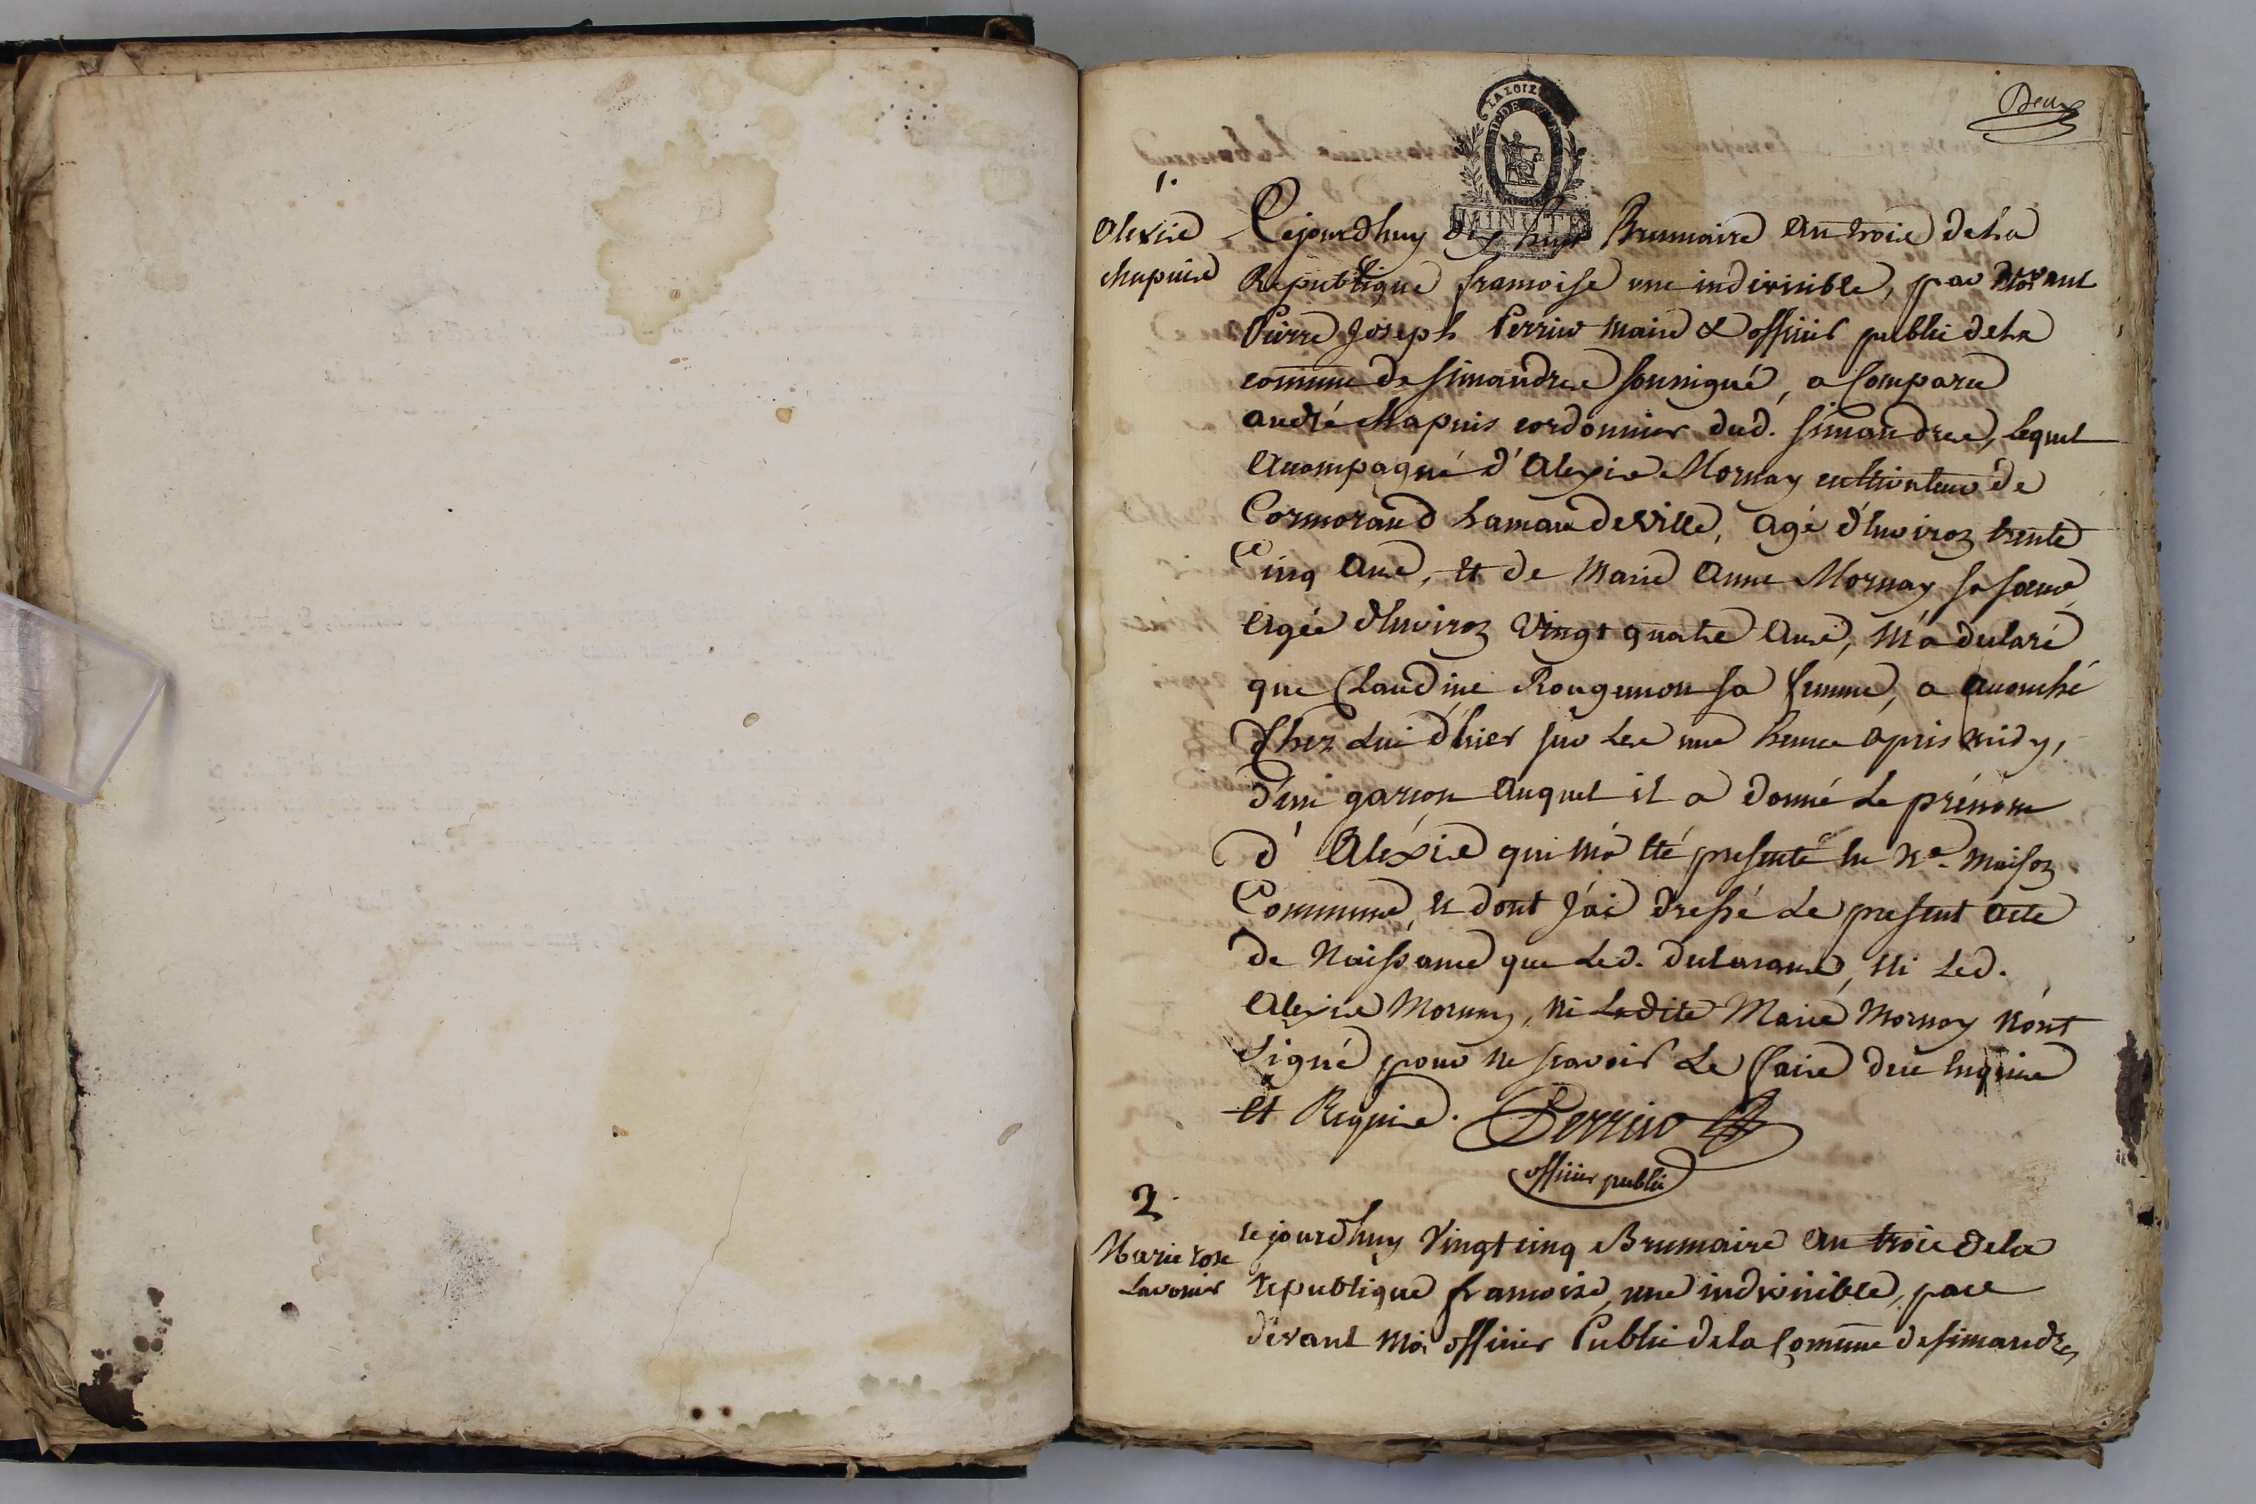 Deux
LA LOI
MINUTE
1.
Alexis
chapuis
Cejourdhuy dix huit Brumaire an trois de la
Republique francoise une indivisible, par devant
Pierre Joseph Perrin maire & officier public de la
commune de simandres soussigné, a comparu
andré chapuis cordonnier dud. simandres, lequel
accompagné d'Alexis Mornay cultivateur de
Cormorand hameau deville, agé d'environ trente
Cinq ans, et de Marie Anne Mornay sa soeur
agée d'environ vingt quatre ans, m'a declaré
que Claudine Rougemon sa femme, a accouché
chez lui d'hier sur les une heure apres midy,
d'un garcon auquel il a donné le prénom
d' Aléxis qui m'a été presenté en nre. maison
Commune, et dont j'ai dressé le present acte
de Naissance que led. declarant, ni led.
Alexis Mornay, ni ladite Marie Mornay n'ont
signé pour ne scavoir le faire de ce enquis
et Requis. Perrin
officier public
2.
Marie rose
Lavenir
cejourdhuy vingt cinq Brumaire an trois de la
republique francoise, une indivisible, par
devant moi officier Public de la Commune de simandres